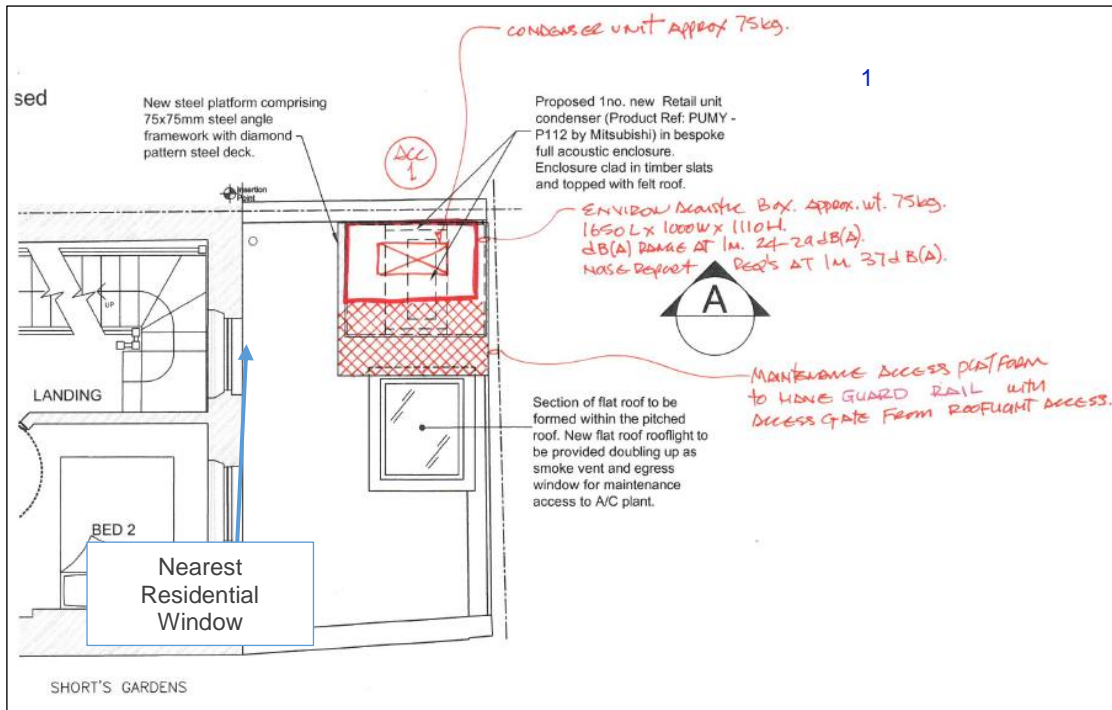 CONDENSER UNIT APPROX 75kg.
1
sed
New steel platform comprising
75x75mm steel angle
framework with diamond
pattern steel deck.
Proposed 1no. new Retail unit
condenser (Product Ref: PUMY -
P112 by Mitsubishi) in bespoke
full acoustic enclosure.
Enclosure clad in timber slats
and topped with felt roof.
ACC
1
Insertion
Point
ENVIRON Acoustic Box. Approx. wt. 75kg.
1650L x 1000W x 1110H.
dB(A) RANGE AT 1M. 24-29dB(A).
NOISE REPORT REQ'S AT 1M 37dB(A).
A
UP
LANDING
MAINTENANCE ACCESS PLATFORM
TO HAVE GUARD RAIL WITH
ACCESS GATE FROM ROOFLIGHT ACCESS.
Section of flat roof to be
formed within the pitched
roof. New flat roof rooflight to
be provided doubling up as
smoke vent and egress
window for maintenance
access to A/C plant.
BED 2
Nearest
Residential
Window
SHORT'S GARDENS